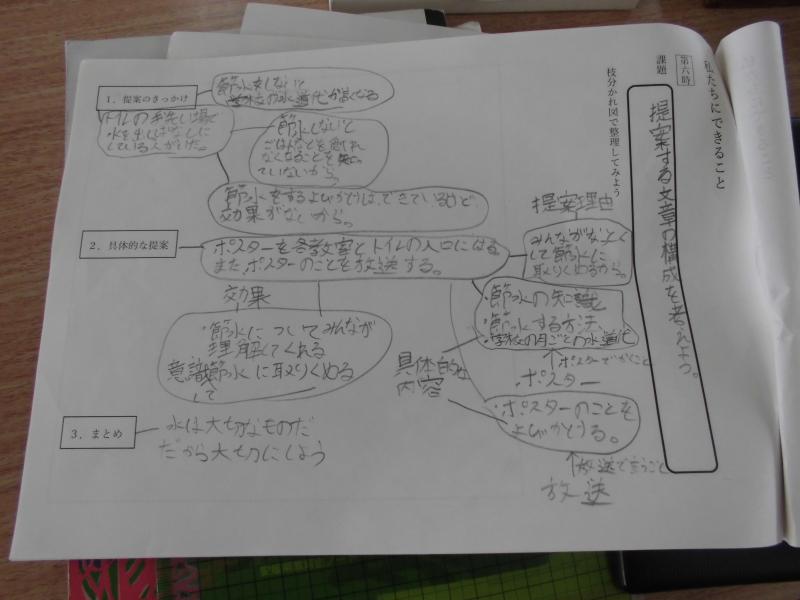 私たちにできること
第六時
課題
提案する文章の構成を考えよう。
枝分かれ図で整理してみよう
1．提案のきっかけ
節水をしないと
学校の水道代が高くなる
トイレの手洗し場で
水を出しぱなしに
している人がいた。
節水しないと
ごはんなどを食べれ
なくなることを知っ
ていないから。
節水をするよびかけは、できているけど
効果がないから。
2．具体的な提案
ポスターを各教室とトイレの入口にはる
また、ポスターのことを放送する。
提案理由
みんながなっとく
して節水に
取りくめるから。
効果
・節水についてみんなが
理解してくれる
意識して節水に取りくめる
具体的な
内容
・節水の知識
・節水する方法
・学校の月ごとの水道代
↑ポスターでかくこと
ポスター
・ポスターのことを
よびかける。
↑放送で言うこと
放送
3．まとめ
水は大切なものだ
だから大切にしよう